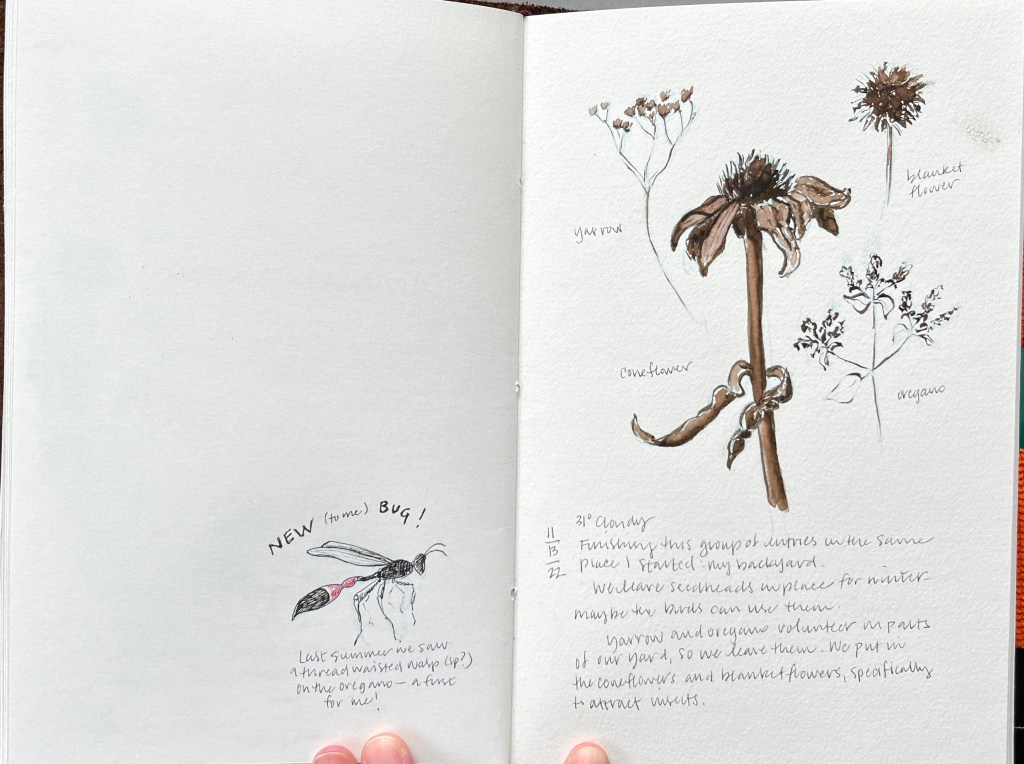 NEW (to me) BUG!
Last summer we saw
a thread waisted wasp (sp?)
on the oregano — a first
for me!
yarrow
blanket
flower
coneflower
oregano
11
13
22
31° Cloudy
Finishing this group of entries in the same
place I started - my backyard.
We leave seedheads in place for winter -
maybe the birds can use them.
Yarrow and oregano volunteer in parts
of our yard, so we leave them. We put in
the coneflowers and blanketflowers, specifically
to attract insects.